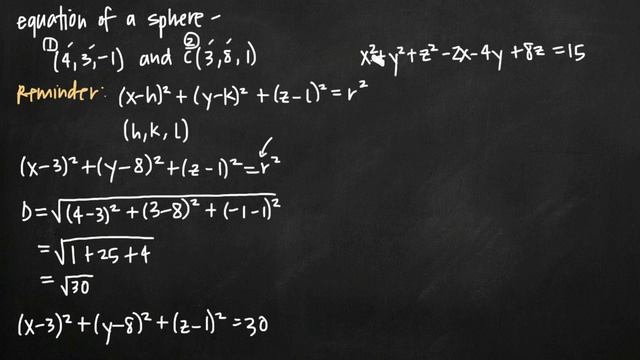 equation of a sphere -
① (4, 3, -1) and ② C(3, 8, 1)
Reminder: (x-h)² + (y-k)² + (z-l)² = r²
(h, k, l)
(x-3)² + (y-8)² + (z-1)² = r²
D = √(4-3)² + (3-8)² + (-1-1)²
= √1 + 25 + 4
= √30
(x-3)² + (y-8)² + (z-1)² = 30
x² + y² + z² - 2x - 4y + 8z = 15